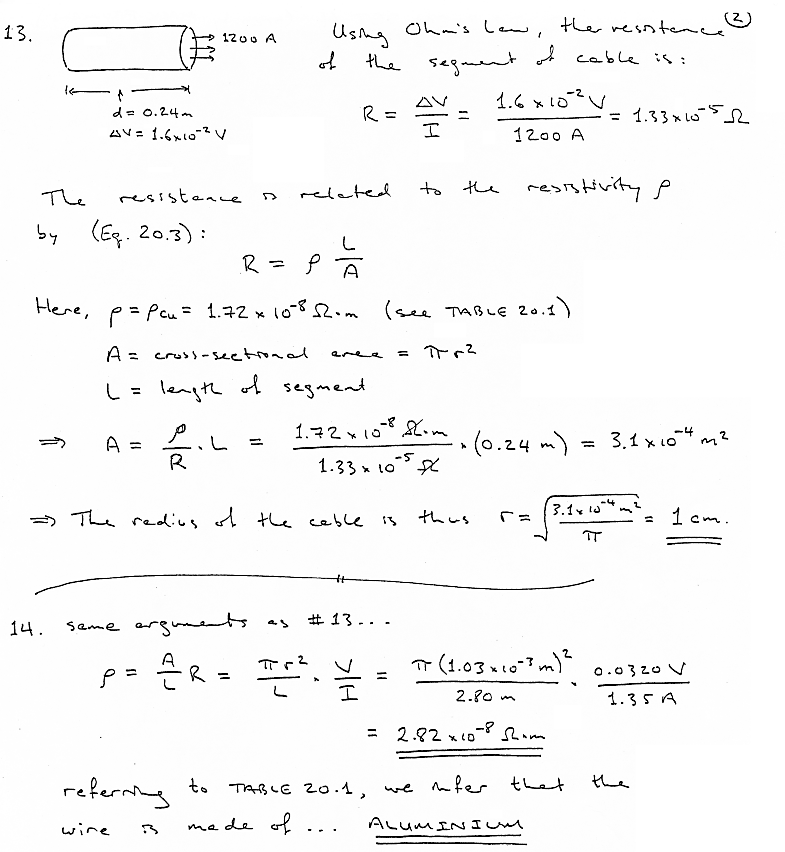 (2)
13.
1200 A
Using Ohm's Law, the resistance
of the segment of cable is:
d = 0.24m
ΔV = 1.6×10⁻² V
R = ΔV/I = 1.6 × 10⁻² V / 1200 A = 1.33 × 10⁻⁵ Ω
The resistance is related to the resistivity ρ
by (Eq. 20.3):
R = ρ L/A
Here, ρ = ρcu = 1.72 × 10⁻⁸ Ω·m (see TABLE 20.1)
A = cross-sectional area = πr²
L = length of segment
⇒ A = ρ/R · L = 1.72 × 10⁻⁸ Ω·m / 1.33 × 10⁻⁵ Ω · (0.24 m) = 3.1 × 10⁻⁴ m²
⇒ The radius of the cable is thus r = √(3.1 × 10⁻⁴ m² / π) = 1 cm.
14. same arguments as #13...
ρ = A/L R = πr²/L · V/I = π(1.03 × 10⁻³ m)² / 2.80 m · 0.0320 V / 1.35 A
= 2.82 × 10⁻⁸ Ω·m
referring to TABLE 20.1, we infer that the
wire is made of ... ALUMINIUM